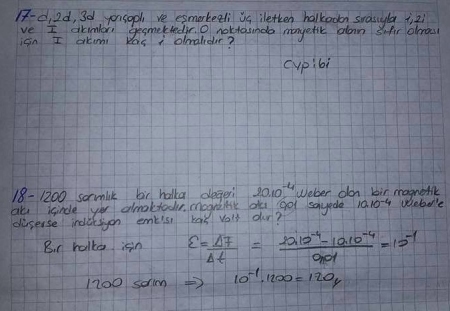 17- d, 2d, 3d yarıçaplı ve eşmerkezli üç iletken halkadan sırasıyla i, 2i
ve I akımları geçmektedir. O noktasında manyetik alanın sıfır olması
için I akımı kaç i olmalıdır?
18- 1200 sarımlık bir halka değeri 20.10⁻⁴ Weber olan bir magnetik
akı içinde yer almaktadır. magnetik akı 0,01 sayede 10.10⁻⁴ Weber'e
düşerse indüksiyon emk'sı kaç volt dur?
Bir halka için ε = Δf / Δt = 20.10⁻⁴ - 10.10⁻⁴ / 0,01 = 10⁻¹
1200 sarım ⇒ 10⁻¹.1200 = 120v